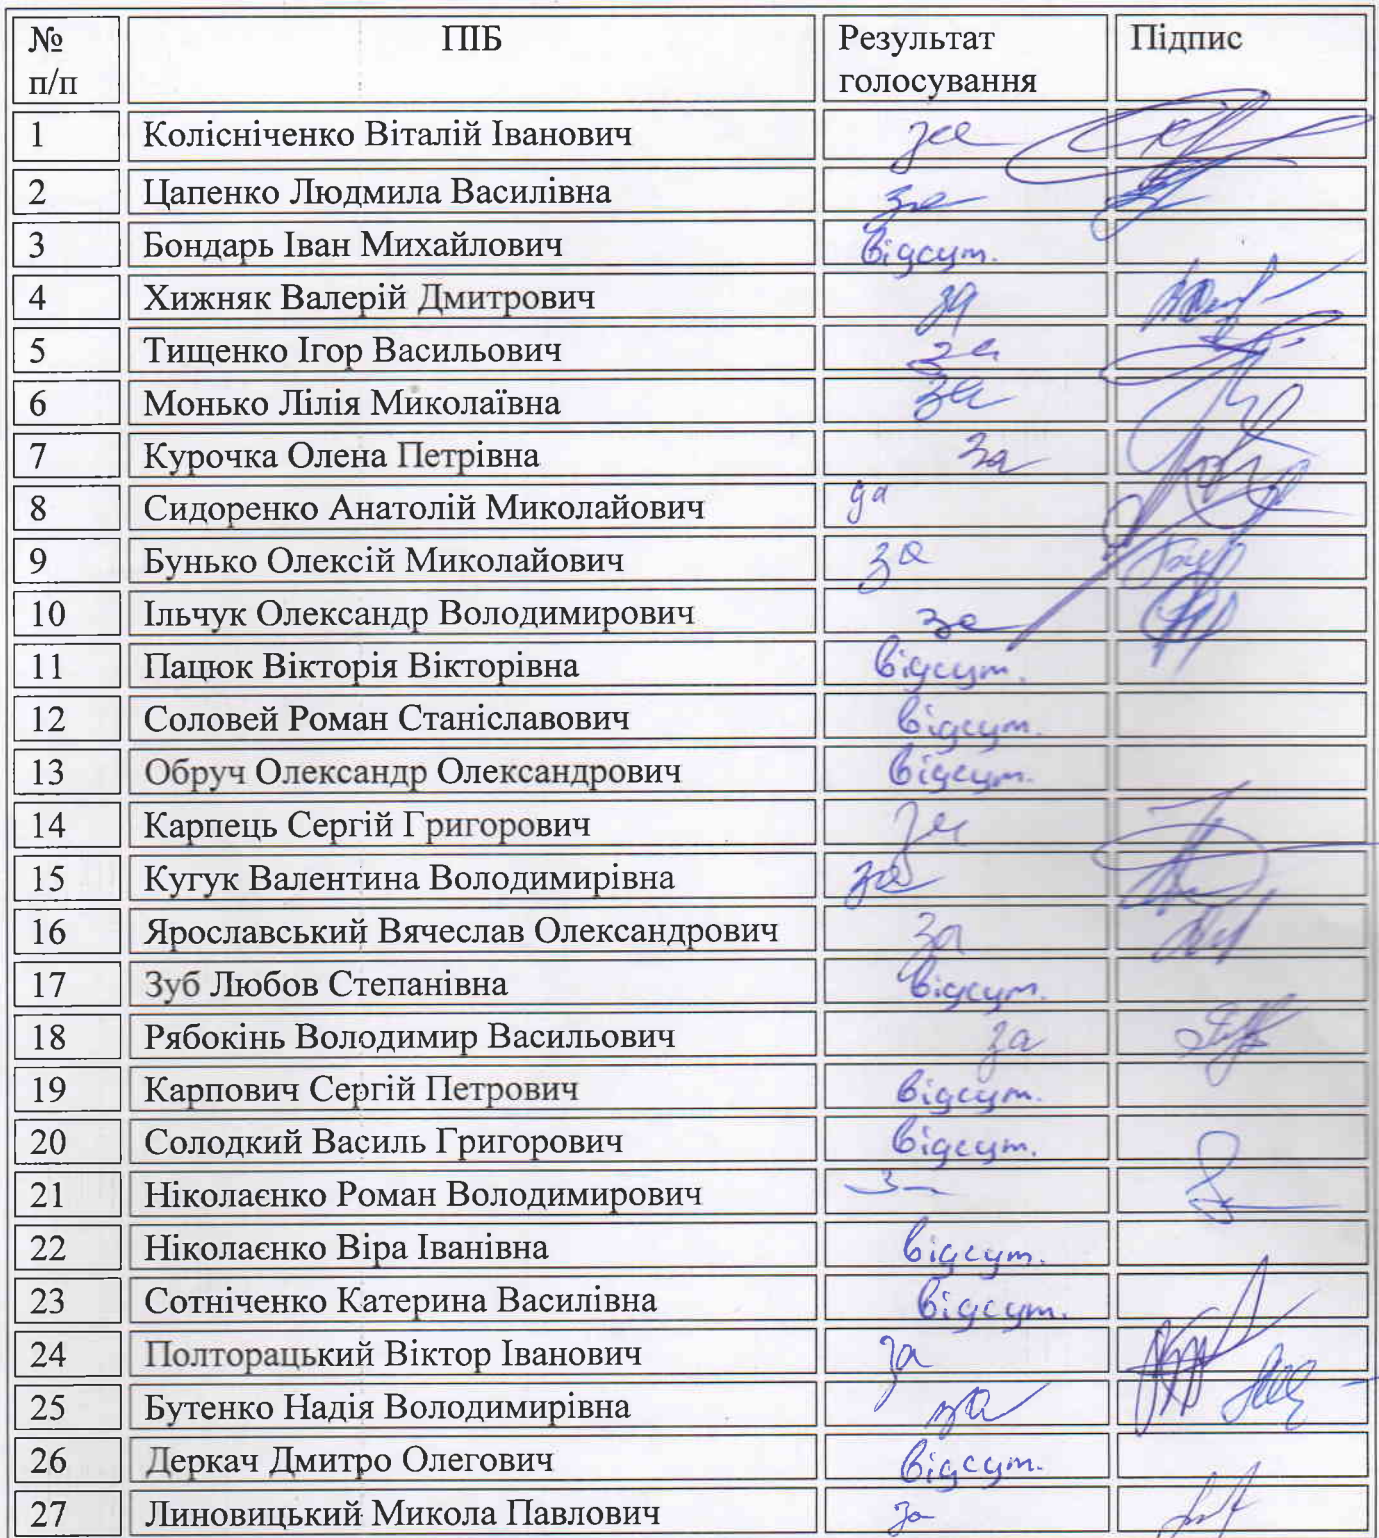 № п/п ПІБ Результат голосування Підпис
1 Колісніченко Віталій Іванович за
2 Цапенко Людмила Василівна за
3 Бондарь Іван Михайлович відсут.
4 Хижняк Валерій Дмитрович за
5 Тищенко Ігор Васильович за
6 Монько Лілія Миколаївна за
7 Курочка Олена Петрівна за
8 Сидоренко Анатолій Миколайович да
9 Бунько Олексій Миколайович за
10 Ільчук Олександр Володимирович за
11 Пацюк Вікторія Вікторівна відсут.
12 Соловей Роман Станіславович відсут.
13 Обруч Олександр Олександрович відсут.
14 Карпець Сергій Григорович за
15 Кугук Валентина Володимирівна за
16 Ярославський Вячеслав Олександрович за
17 Зуб Любов Степанівна відсут.
18 Рябокінь Володимир Васильович за
19 Карпович Сергій Петрович відсут.
20 Солодкий Василь Григорович відсут.
21 Ніколаєнко Роман Володимирович
22 Ніколаєнко Віра Іванівна відсут.
23 Сотніченко Катерина Василівна відсут.
24 Полторацький Віктор Іванович за
25 Бутенко Надія Володимирівна за
26 Деркач Дмитро Олегович відсут.
27 Линовицький Микола Павлович за